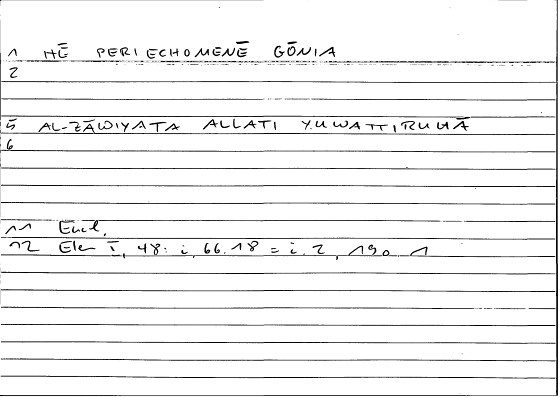 1 HĒ PERIECHOMENĒ GŌNIA
2
5 AL-ZĀWIYATA ALLATI YUWATTIRUHĀ
6
11 Eucl.
12 Elem I, 48: i, 66.18 = i.2, 190 1